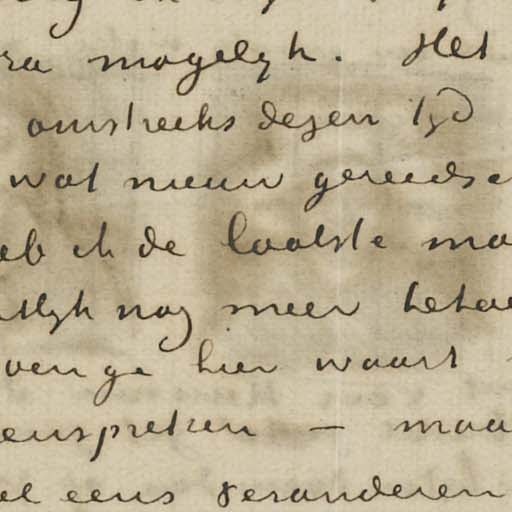 mogelyk. Het
omstreeks dezen tyd
wat nieuw gereeds
eb ik de laatste ma
tlyk nog meer betae
oen ge hier waart
enspreken — maa
el eens veranderen